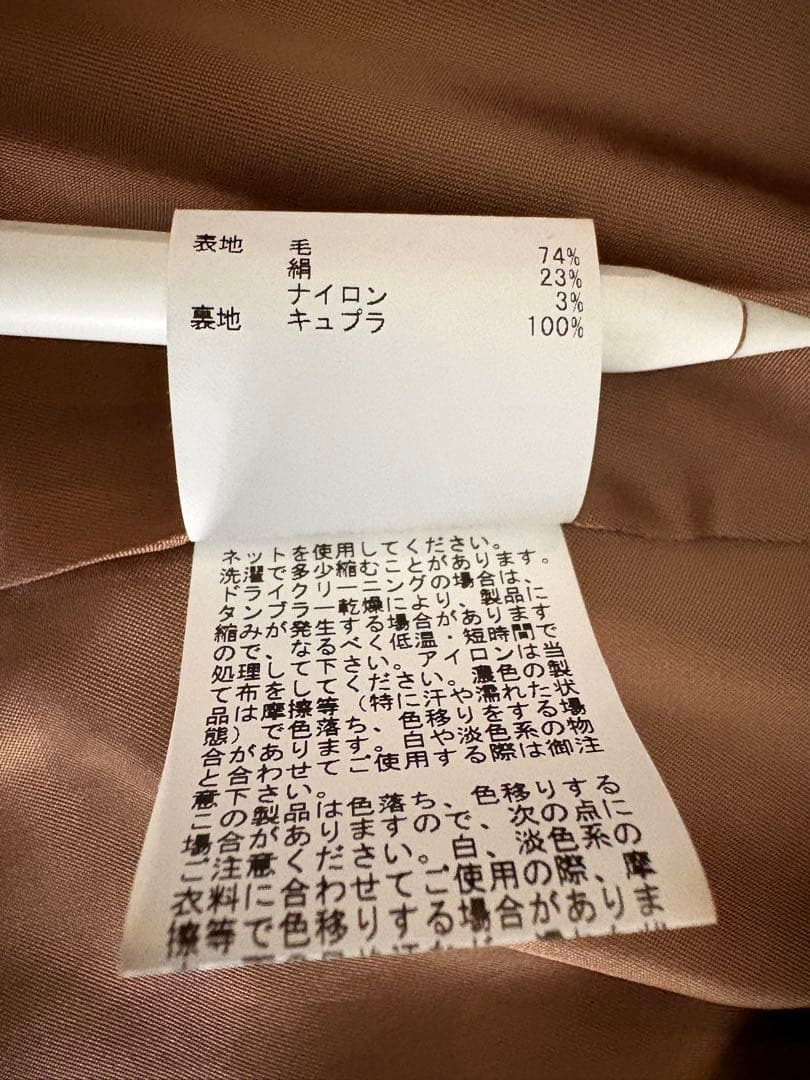 表地 毛 74%
絹 23%
ナイロン 3%
裏地 キュプラ 100%
ネットを使用してください。
洗濯で多少縮むことがあります。
ドライクリーニングの場合は、
タンブラー乾燥により、製品に
縮みが発生する場合があります
ので、なるべく低温・短時間で
処理して下さい。アイロンは当
て布をしてください。濃色の製
品は摩擦等（特に汗や濡れた状
態）で色落ち、色移りをする場
合があります。白や淡色系の物
と合わせてご使用する際は御注
意下さい。
この製品は色落ち、色移りする
場合がありますので、次の点に
ご注意ください。白、淡色系の
衣料に合わせてご使用の際、摩
擦等で色移りする場合がありま